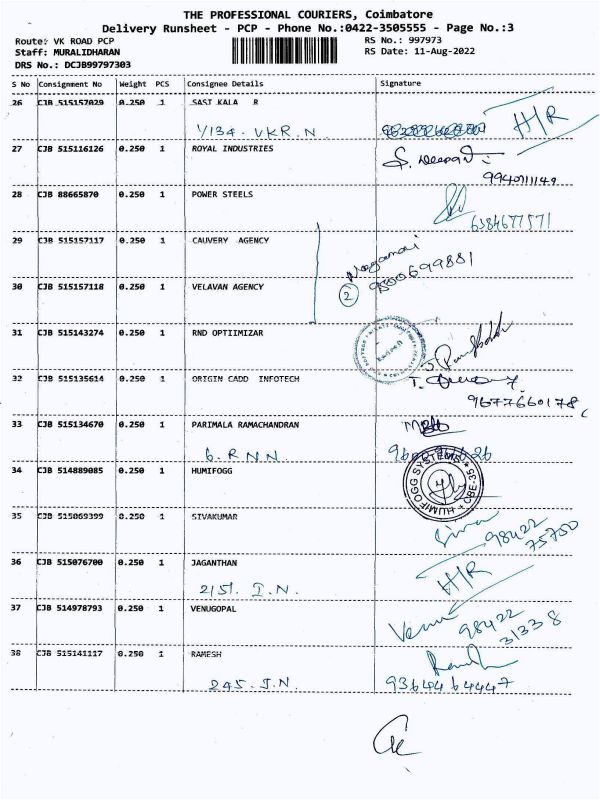 THE PROFESSIONAL COURIERS, Coimbatore
Delivery Runsheet - PCP - Phone No.:0422-3505555 - Page No.:3
Route: VK ROAD PCP
RS No.: 997973
Staff: MURALIDHARAN
RS Date: 11-Aug-2022
DRS No.: DCJB99797303
S No Consignment No Weight PCS Consignee Details Signature
26 CJB 515157029 0.250 1 SASI KALA R
1/134. VKR. N H/R
27 CJB 515116126 0.250 1 ROYAL INDUSTRIES
9940711149
28 CJB 88665870 0.250 1 POWER STEELS
6384677571
29 CJB 515157117 0.250 1 CAUVERY AGENCY
9500699881
30 CJB 515157118 0.250 1 VELAVAN AGENCY
2
31 CJB 515143274 0.250 1 RND OPTIIMIZAR
32 CJB 515135614 0.250 1 ORIGIN CADD INFOTECH
9677660178
33 CJB 515134670 0.250 1 PARIMALA RAMACHANDRAN
6. R N N.
34 CJB 514889085 0.250 1 HUMIFOGG
HUMIFOGG SYSTEMS CBE-35
35 CJB 515069399 0.250 1 SIVAKUMAR
Siva 98422
75750
36 CJB 515076700 0.250 1 JAGANTHAN
2/51. I.N. H/R
37 CJB 514978793 0.250 1 VENUGOPAL
Venu 98422
31338
38 CJB 515141117 0.250 1 RAMESH
245. I.N. 9364464447